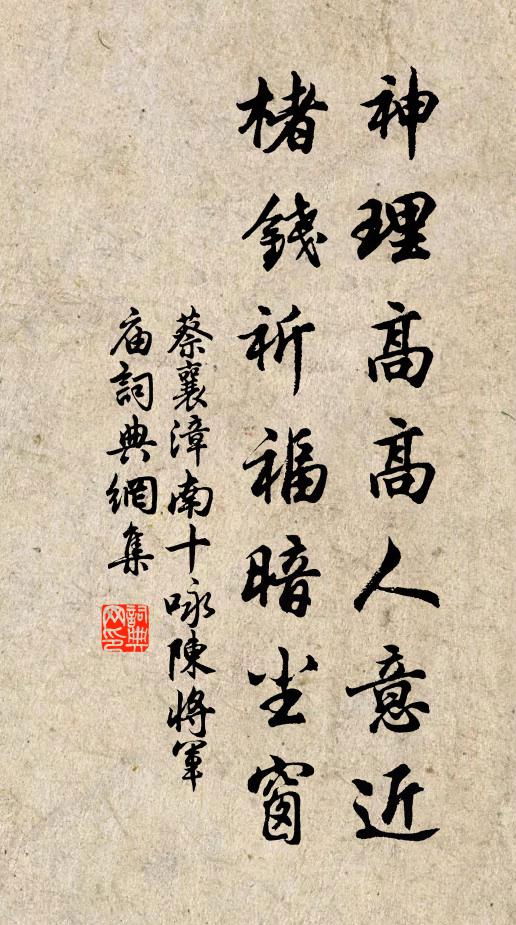 神理高高人意近
楮錢祈福暗尘窗
蔡襄漳南十咏陳將軍
庙詞典網集
詞典网印